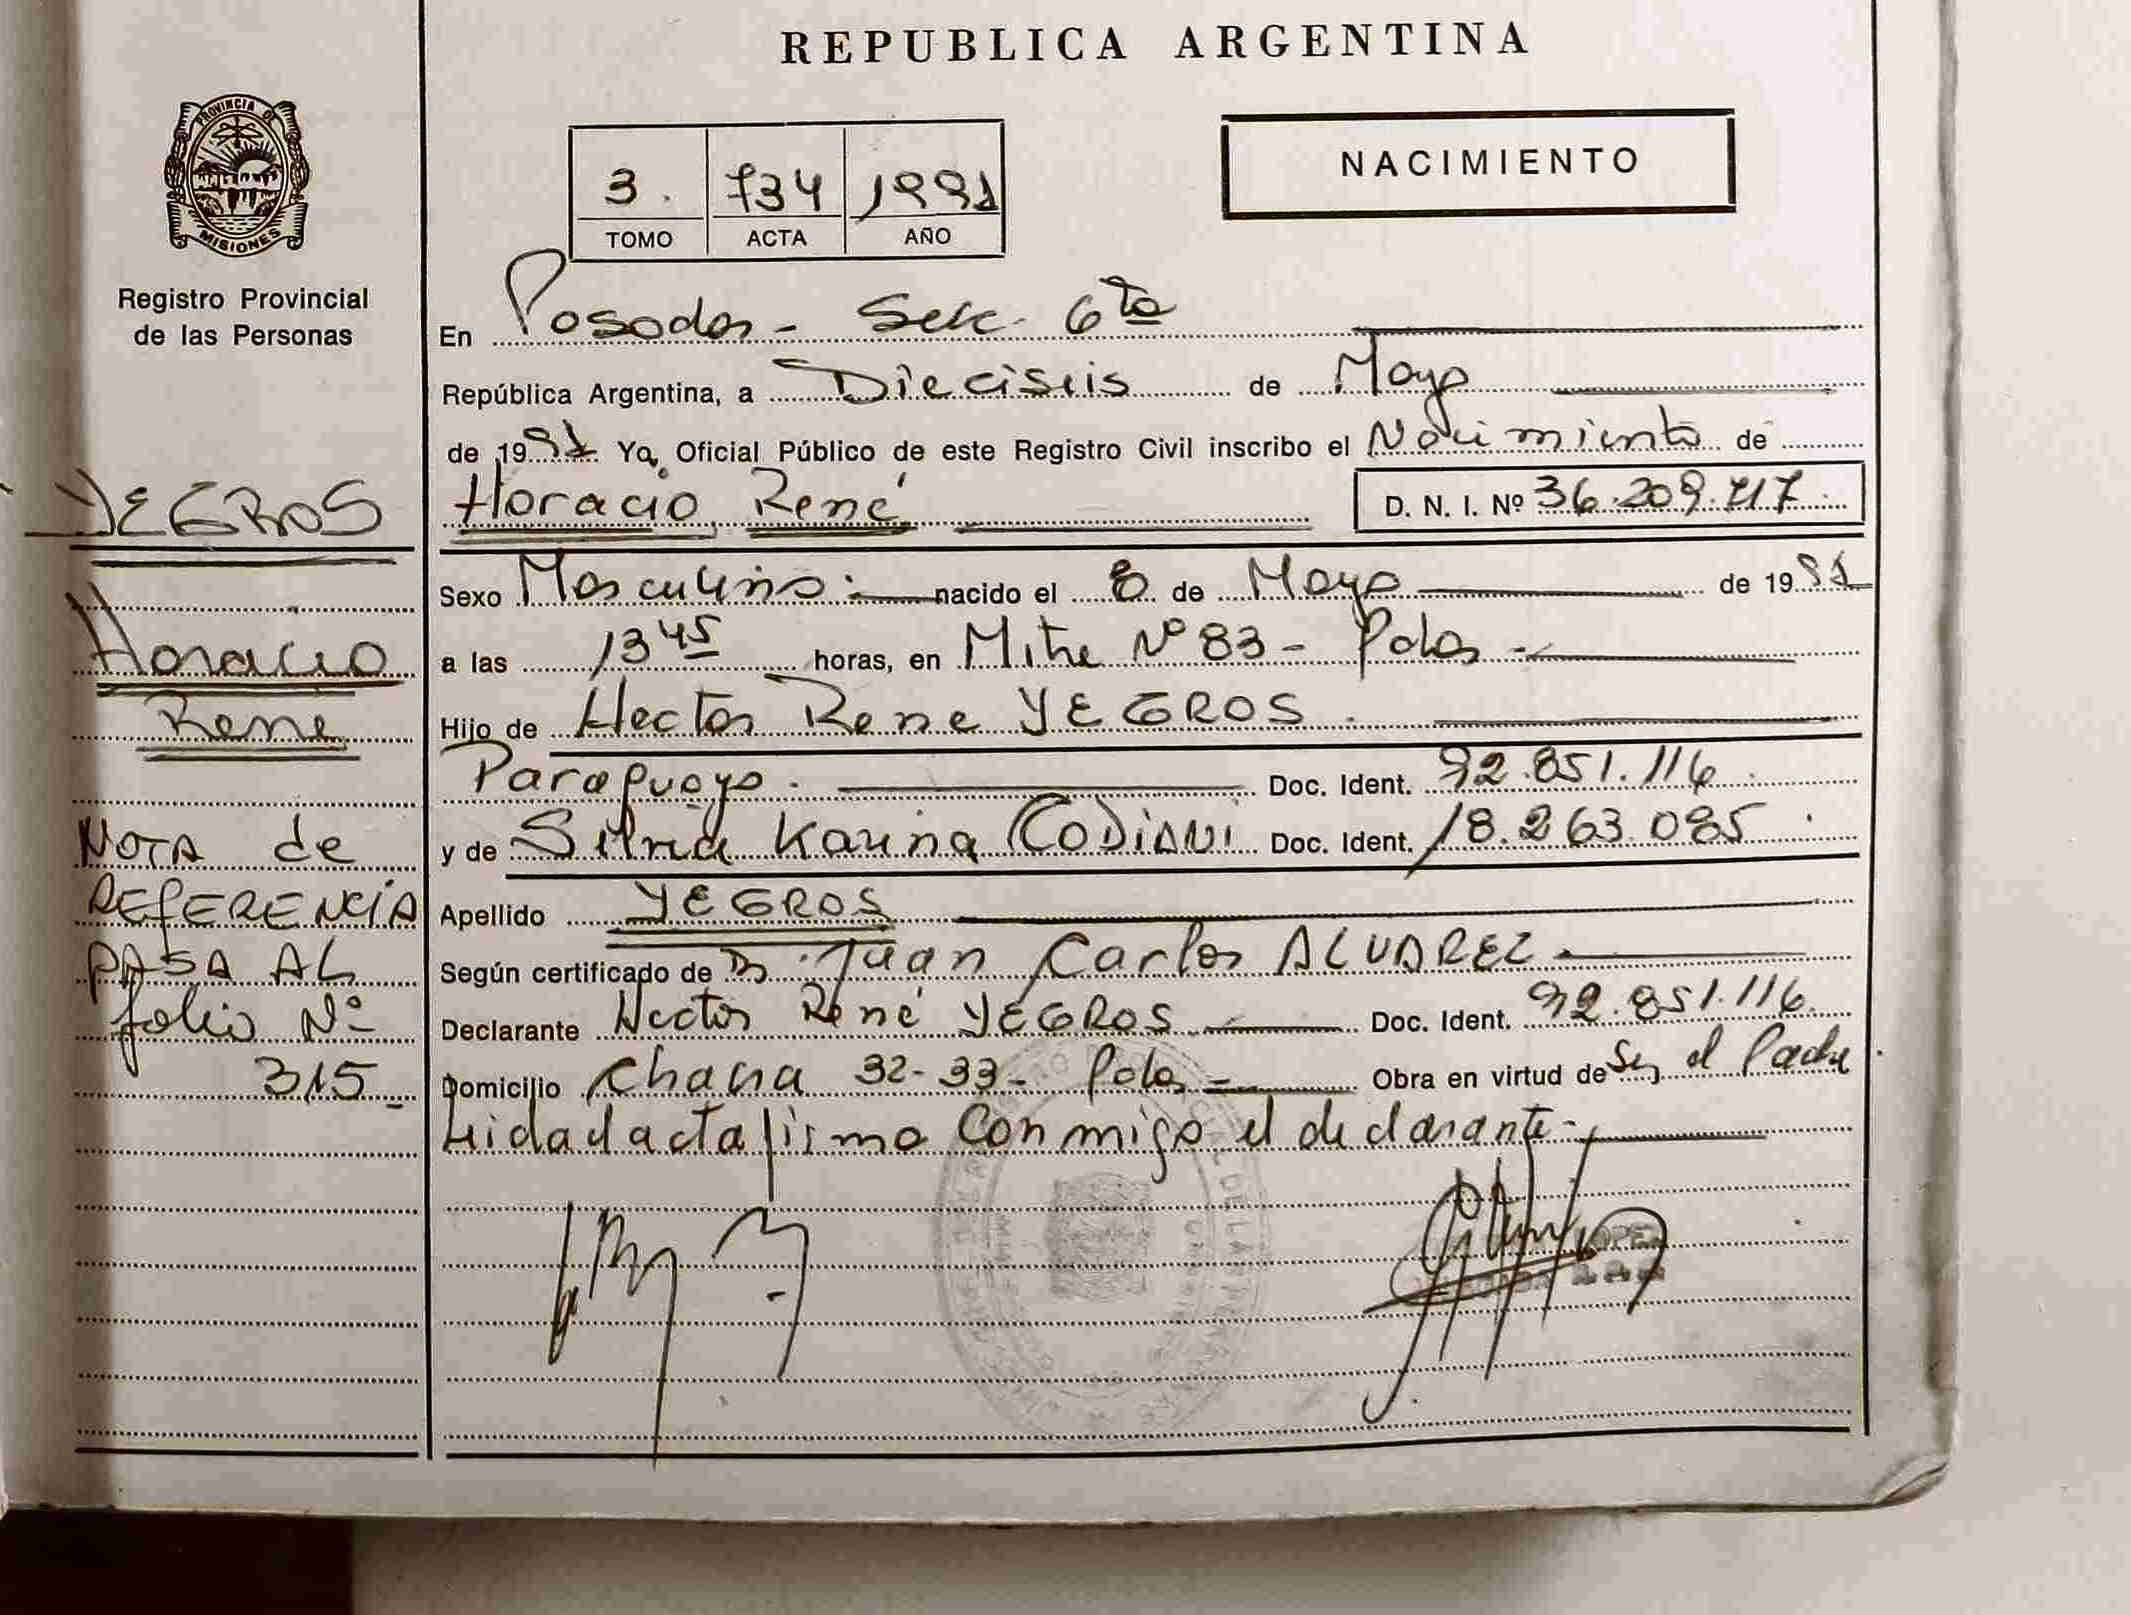 REPUBLICA ARGENTINA
PROVINCIA DE
MISIONES
Registro Provincial
de las Personas
NACIMIENTO
3. 734 1991
TOMO ACTA AÑO
En Posadas - Secc. 6ta
República Argentina, a Dieciseis de Mayo
de 1991 Yo, Oficial Público de este Registro Civil inscribo el Nacimiento de
Horacio, René D. N. I. Nº 36.209.717
Sexo Masculino.- nacido el 8 de Mayo de 1991
a las 13 45 horas, en Mitre Nº 83 - Pdas -
Hijo de Hector Rene YEGROS
Paraguayo. Doc. Ident. 92.851.116
y de Silvia Karina CODIANI Doc. Ident. 18.263.085
Apellido YEGROS
Según certificado de Dr. Juan Carlos ALVAREZ -
Declarante Hector René YEGROS Doc. Ident. 92.851.116
Domicilio Chacra 32-33- Pdas - Obra en virtud de Ser el Padre
Leida el acta firmo conmigo el declarante-
YEGROS
Horacio
Rene
NOTA de
REFERENCIA
PASA AL
folio Nº
315